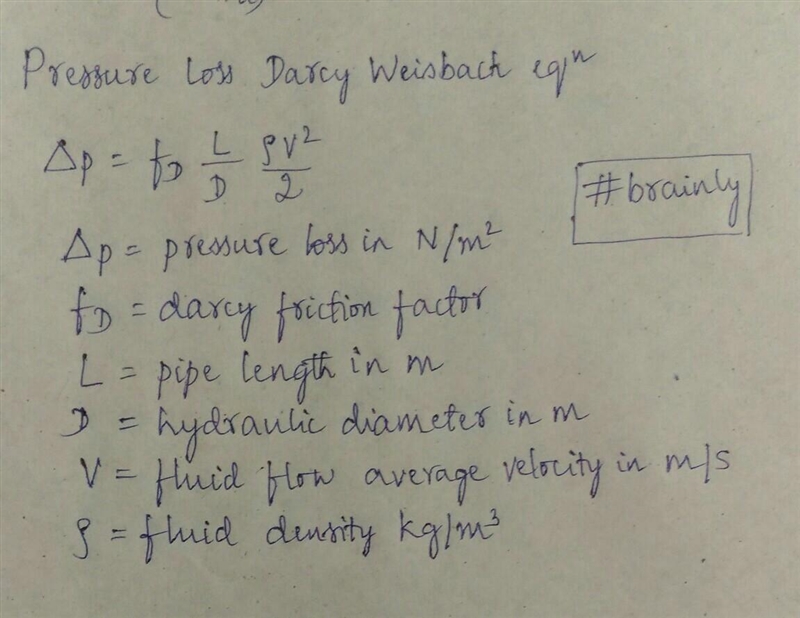 Pressure loss Darcy Weisbach eqⁿ
Δp = f_D L/D ρV²/2
#brainly
Δp = pressure loss in N/m²
f_D = darcy friction factor
L = pipe length in m
D = hydraulic diameter in m
V = fluid flow average velocity in m/s
ρ = fluid density kg/m³